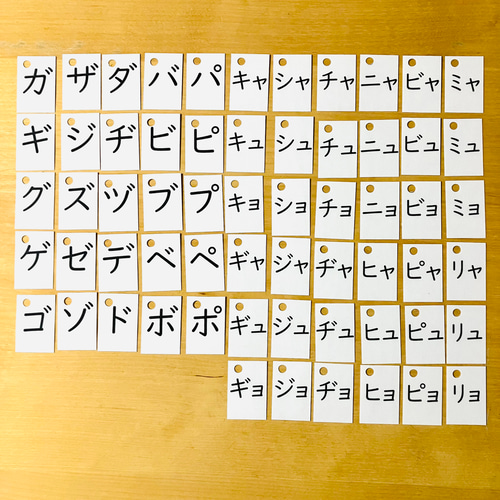 ガ ザ ダ バ パ キャ シャ チャ ニャ ビャ ミャ
ギ ジ ヂ ビ ピ キュ シュ チュ ニュ ビュ ミュ
グ ズ ヅ ブ プ キョ ショ チョ ニョ ビョ ミョ
ゲ ゼ デ ベ ペ ギャ ジャ ヂャ ヒャ ピャ リャ
ゴ ゾ ド ボ ポ ギュ ジュ ヂュ ヒュ ピュ リュ
ギョ ジョ ヂョ ヒョ ピョ リョ